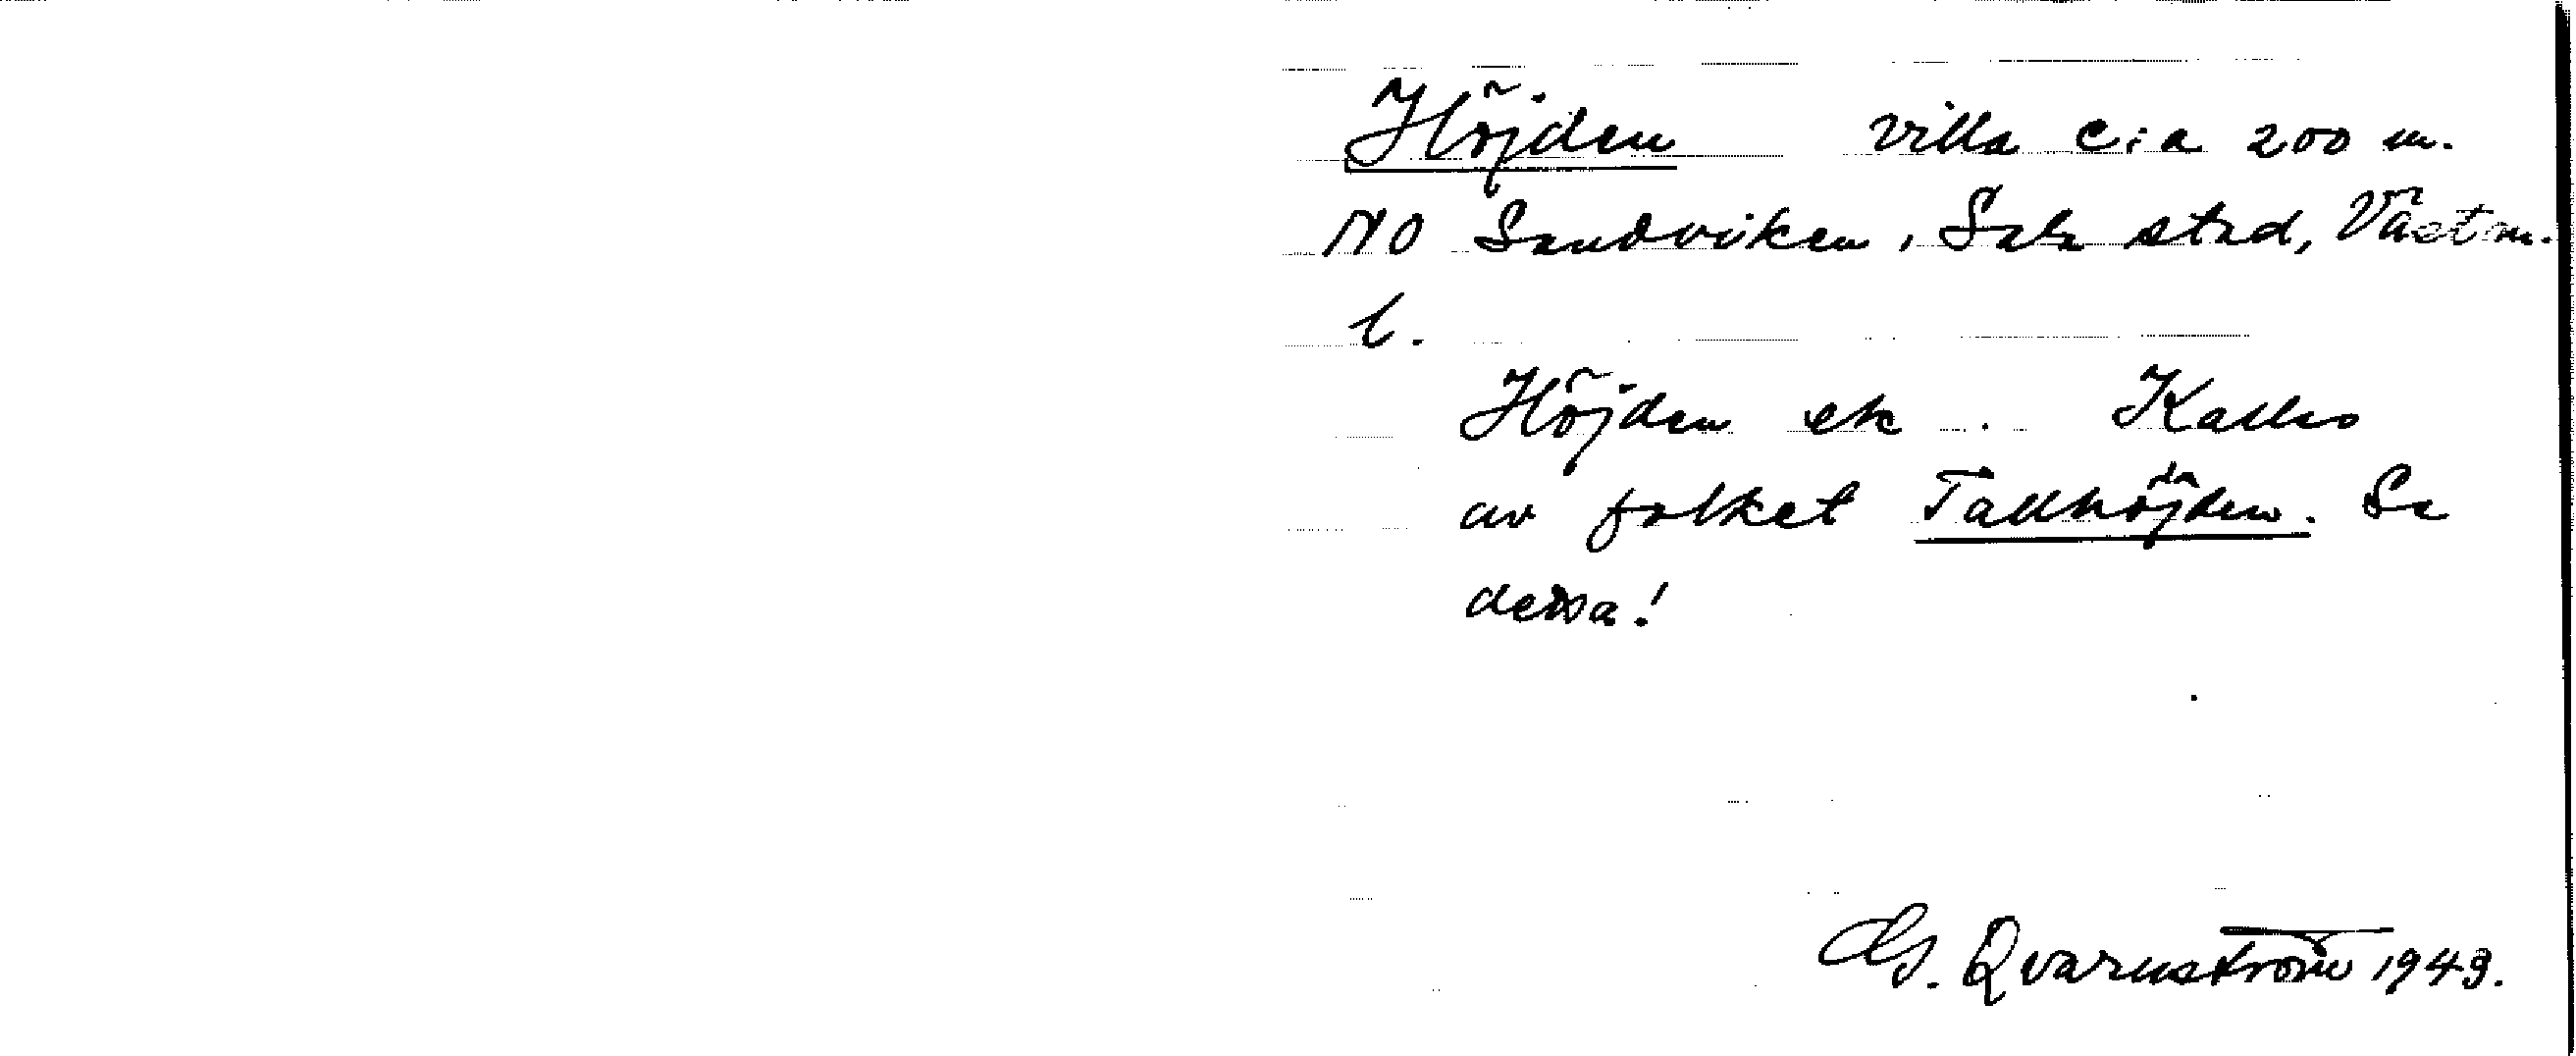 Höjden villa c:a 200 m.
NO Sandviken, Sala stad, Västm.
l.
Höjden ek. Kallas
av folket Tallhöjden. Se
dessa!
G. Qvarnström 1943.